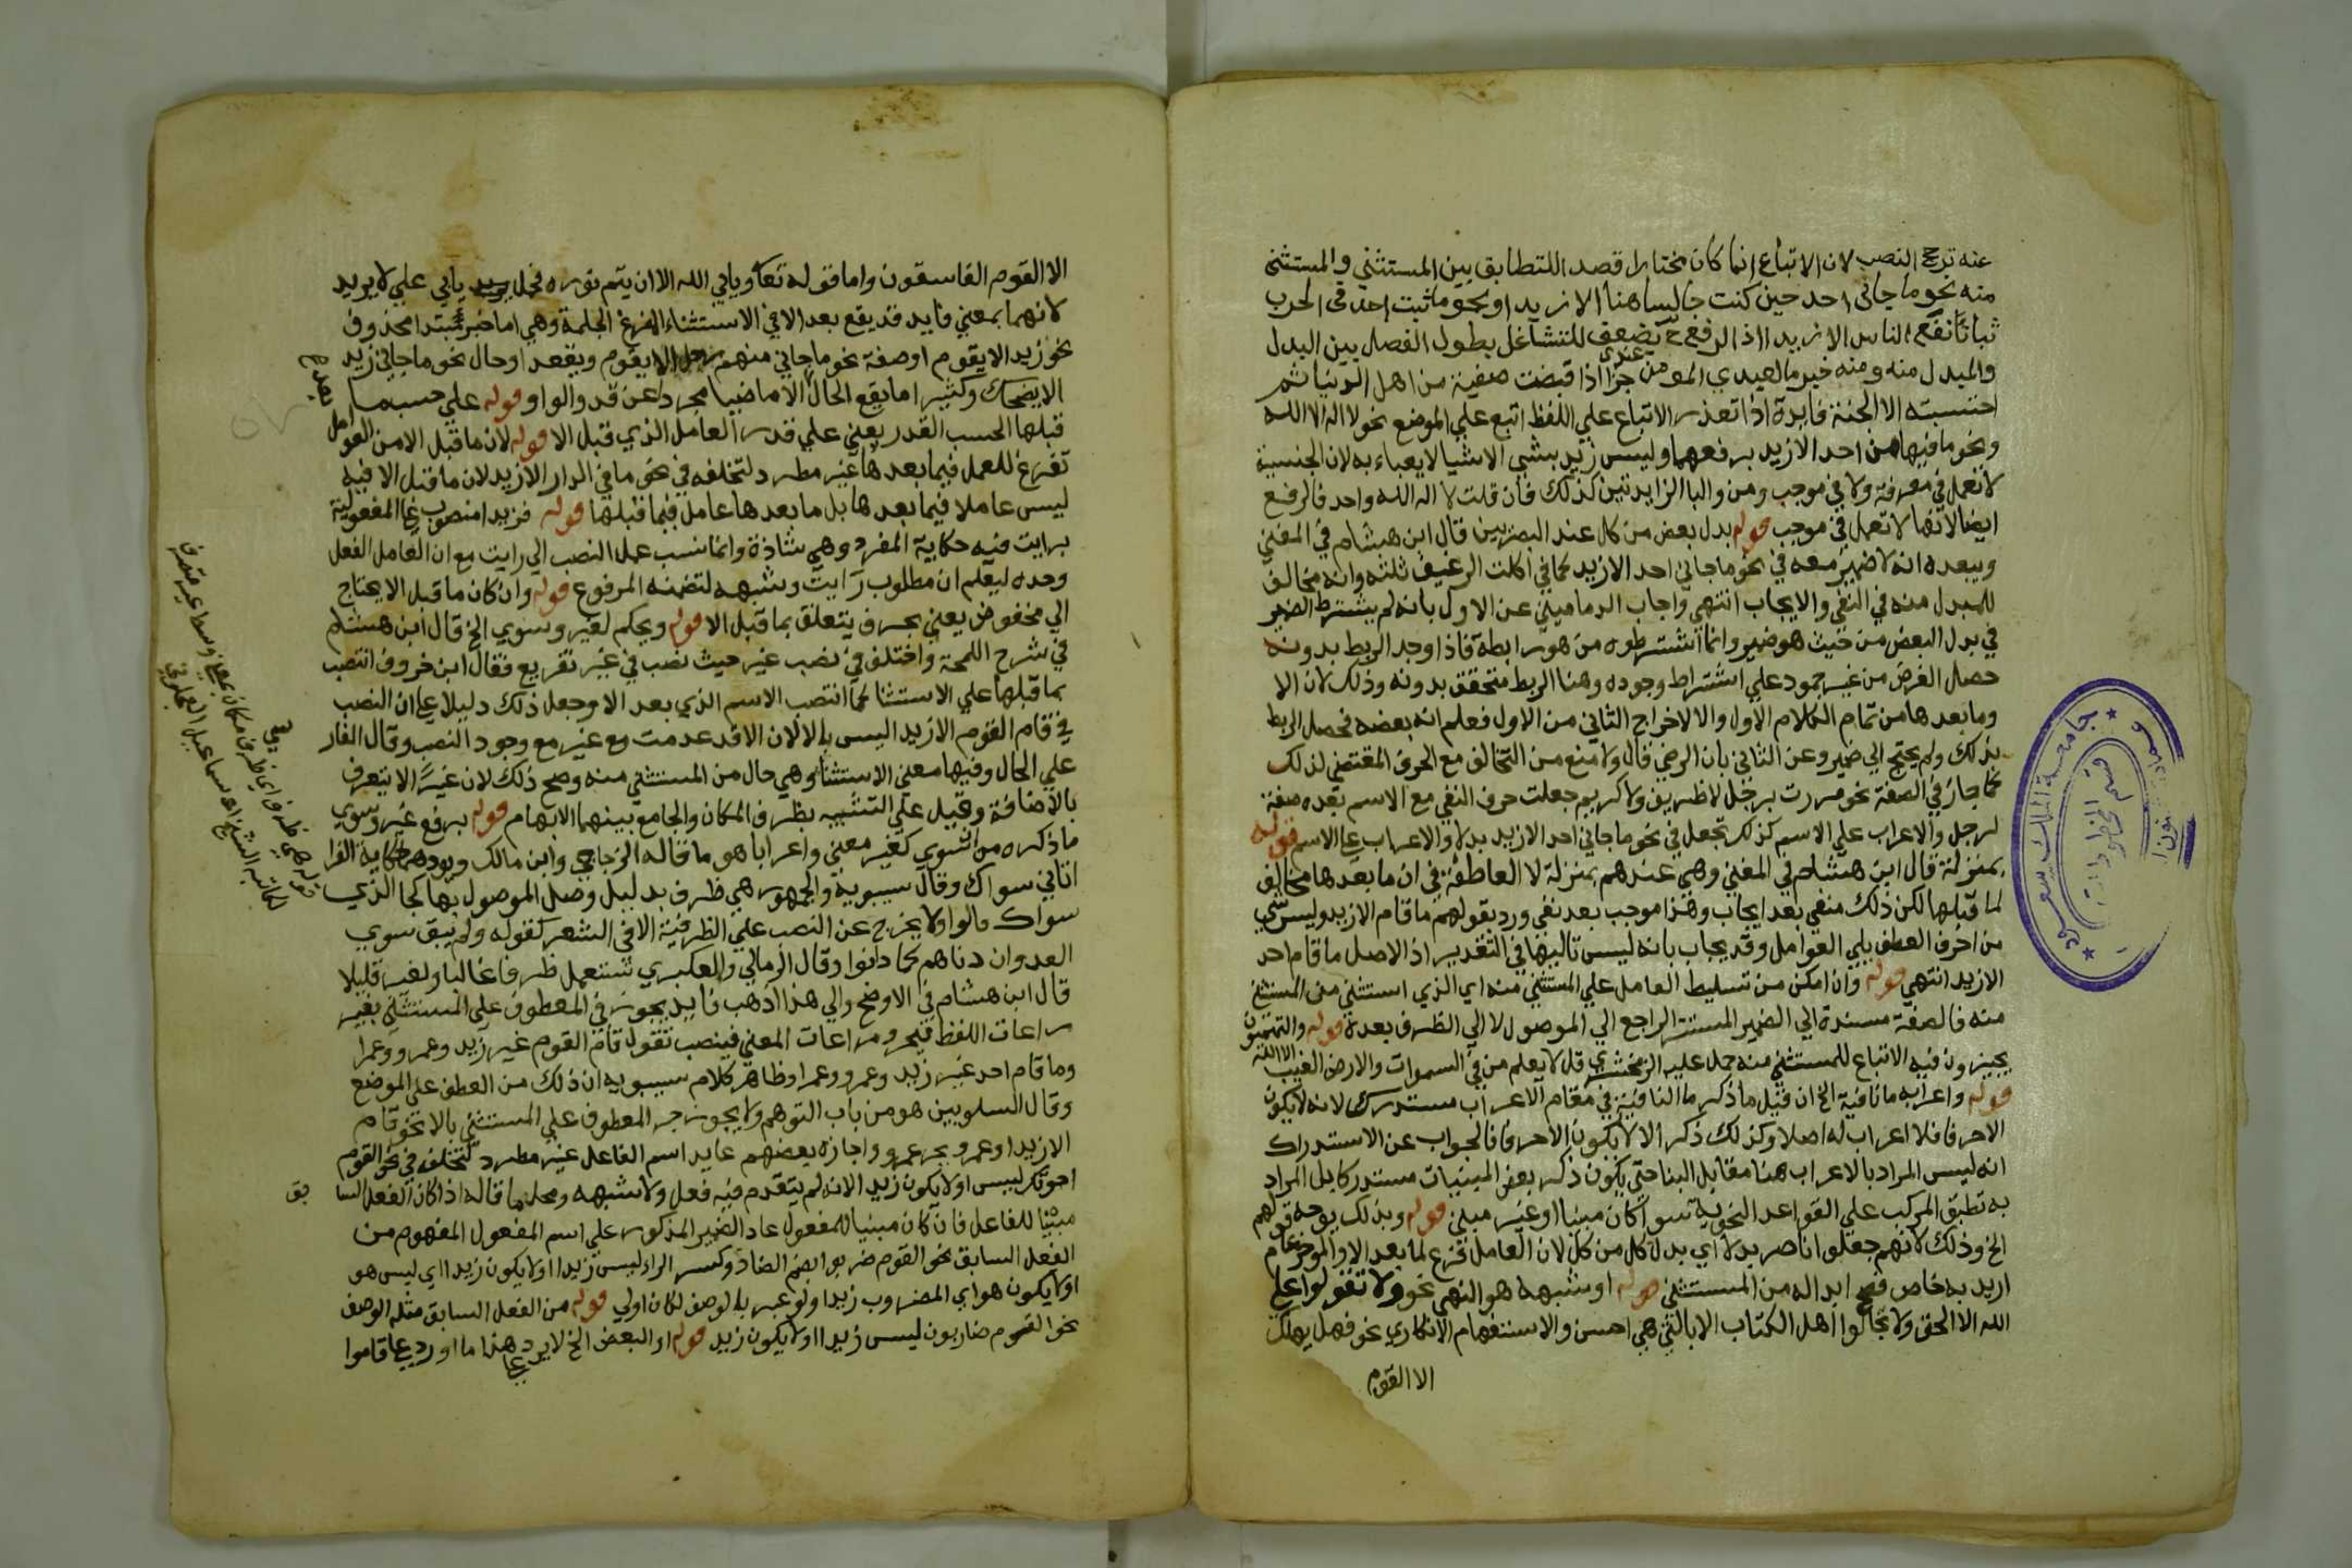 عنه ترجح النصب لان الاتباع انما كان مختارا قصد اللتطابق بين المستثني والمستثني
منه نحو ما جاني احد حين كنت جالسا هنا الا زيدا ونحو ما ثبت احد في الحرب
ثباتا نفع الناس الا زيدا اذ الرفع ح يضعف للتشاغل بطول الفصل بين البدل
والمبدل منه ومنه خبر ما لعبدي المومن عندي جزا اذا قبضت صفيه من اهل الدنيا ثم
احتسبه الا الجنة فايدة اذا تعذر الاتباع علي اللفظ اتبع علي الموضع نحو لا اله الا الله
ونحو ما فيها من احد الا زيد برفعهما وليس زيد بشي الا شيا لا يعباء به لان الجنسية
لا تعمل في معرفة ولا في موجب ومن والبا الزايدتين كذلك فان قلت لا اله الله واحد فالرفع
ايضا لانها لا تعمل في موجب قوله بدل بعض من كل عند البصريين قال ابن هشام في المغني
ويبعده انه لا ضمير معه في نحو ما جاني احد الا زيد كما في اكلت الرغيف ثلثه وانه مخالف
للمبدل منه في النفي والايجاب انتهي واجاب الدماميني عن الاول بانه لم يشترط الضمير
في بدل البعض من حيث هو ضمير وانما اشترطوه من هو رابطة فاذا وجد الربط بدونه
حصل الغرض من غير جمود علي اشتراط وجوده وهنا الربط متحقق بدونه وذلك لان الا
وما بعدها من تمام الكلام الاول والا لاخراج الثاني من الاول فعلم انه بعضه فحصل الربط
بذلك ولم يحتج الي ضمير وعن الثاني بان الرضي قال ولا منع من التخالف مع الحرف المقتضي لذلك
كما جاز في الصفة نحو مررت برجل لا ظريف ولا كريم جعلت حرف النفي مع الاسم بعده صفة
لرجل والاعراب علي الاسم كذلك تجعل في نحو ما جاني احد الا زيد بدلا والاعراب علي الاسم قوله
بمنزلة قال ابن هشام في المغني وهي عندهم بمنزلة لا العاطفة في ان ما بعدها مخالف
لما قبلها لكن ذلك منفي بعد ايجاب وهذا موجب بعد نفي ورد بقولهم ما قام الا زيد وليس شي
من احرف العطف يلي العوامل وقد يجاب بانه ليس تاليها في التقدير اذ الاصل ما قام احد
الا زيد انتهي قوله وان امكن من تسليط العامل علي المستثني منه اي الذي استثني منه المستثني
منه فالصفة مسندة الي الضمير المستتر الراجع الي الموصول لا الي الظرف بعده قوله والتميميون
يجيزون فيه الاتباع للمستثني منه حمل عليه الزمخشري قل لا يعلم من في السموات والارض الغيب الا الله
قوله واعرابه ما نافية الخ ان قيل ما ذكر ما النافية في مقام الاعراب مستدرك لانه لا يكون
الا حرفا فلا اعراب له اصلا وكذلك ذكر الا لا يكون الا حرفا فالجواب عن الاستدراك
انه ليس المراد بالاعراب هنا مقابل البنا حتي يكون ذكر بعض المبنيات مستدركا بل المراد
به تطبيق المركب علي القواعد النحوية سوا كان مبنيا او غير مبني قوله وبذلك يوجه قولهم
الخ وذلك لانهم جعلوا ناصر بدلا اي بدل كل من كل لان العامل فرغ لما بعد الا والموخر عام
اريد به خاص فصح ابداله من المستثني قوله او شبهه هو النهي نحو ولا تقولوا علي
الله الا الحق ولا تجادلوا اهل الكتاب الا بالتي هي احسن والاستفهام الانكاري نحو فهل يهلك
الا القوم
جامعة الملك سعود
قسم المخطوطات
الا القوم الفاسقون واما قوله تعا ويابي الله الا ان يتم نوره فحمل يابي علي لا يريد
لانهما بمعني فايد قد يقع بعد الا في الاستثناء المفرغ الجملة وهي اما خبر مبتدا محذوف
نحو زيد الا يقوم او صفة نحو ما جاني منهم رجل الا يقوم ويقعد او حال نحو ما جاني زيد
الا يضحك وكثيرا ما يقع الحال الا ماضيا مجردا عن قد والواو قوله علي حسب ما
قبلها الحسب القدر يعني علي قدر العامل الذي قبل الا قوله لان ما قبل الا من العوامل
تفرغ للعمل فيما بعدها غير مطرد لتخلفه في نحو ما في الدار الا زيد لان ما قبل الا فيه
ليس عاملا فيما بعدها بل ما بعدها عامل فيما قبلها قوله فزيدا منصوب علي المفعولية
برايت فيه حكاية المفرد وهي شاذة وانما نسب عمل النصب الي رايت مع ان العامل الفعل
وحده ليعلم ان مطلوب رايت وشبهه لتضمنه المرفوع قوله وان كان ما قبل الا يحتاج
الي مخفوض يعني بحرف يتعلق بما قبل الا قوله ويحكم لغير وسوي الخ قال ابن هشام
في شرح اللمحة واختلف في نصب غير حيث نصب في غير تفريع فقال ابن خروف انتصب
بما قبلها علي الاستثنا كما انتصب الاسم الذي بعد الا وجعل ذلك دليلا علي ان النصب
في قام القوم الا زيدا ليس بالا لان الا قد عدمت مع غير مع وجود النصب وقال الفار
علي الحال وفيها معني الاستثنا وهي حال من المستثني منه وصح ذلك لان غيرا لا يتعرف
بالاضافة وقيل علي التشبيه بظرف المكان والجامع بينهما الابهام قوله برفع غير وسوي
ما ذكره من ان سوي كغير معني واعرابا هو ما قاله الزجاجي وابن مالك ويودهما حكاية الفرا
اتاني سواك وقال سيبويه والجمهور هي ظرف بدليل وصل الموصول بها كجا الذي
سواك قالوا ولا يخرج عن النصب علي الظرفية الا في الشعر كقوله ولم يبق سوي
العدوان دناهم كما دانوا وقال الرماني والعكبري تستعمل ظرفا غالبا وكغير قليلا
قال ابن هشام في الاوضح والي هذا اذهب فايد يجوز في المعطوف علي المستثني بغير
مراعات اللفظ فيجر ومراعات المعني فينصب تقول قام القوم غير زيد وعمرو وعمرا
وما قام احد غير زيد وعمرو وعمرا وظاهر كلام سيبويه ان ذلك من العطف علي الموضع
وقال السلوبين هو من باب التوهم ولا يجوز جر المعطوف علي المستثني بالا نحو قام
الا زيدا وعمرو بجر عمرو واجازه بعضهم عايد اسم الفاعل غير مطرد لتخلفه في نحو القوم
اخوتك ليس او لا يكون زيد الانه لم يتقدم فيه فعل ولا شبهه ومحل ما قاله اذا كان الفعل السا
بق
مبنيا للفاعل فان كان مبنيا للمفعول عاد الضمير المذكور علي اسم المفعول المفهوم من
الفعل السابق نحو القوم ضربوا بضم الضاد وكسر الراء ليس زيدا او لا يكون زيدا اي ليس هو
او لا يكون هو اي المضروب زيدا ولو عبر بالوصف لكان اولي قوله من الفعل السابق مثله الوصف
نحو القوم ضاربون ليس زيدا او لا يكون زيد قوله او البعض الخ لا يرد هذا ما اورد علي قاموا